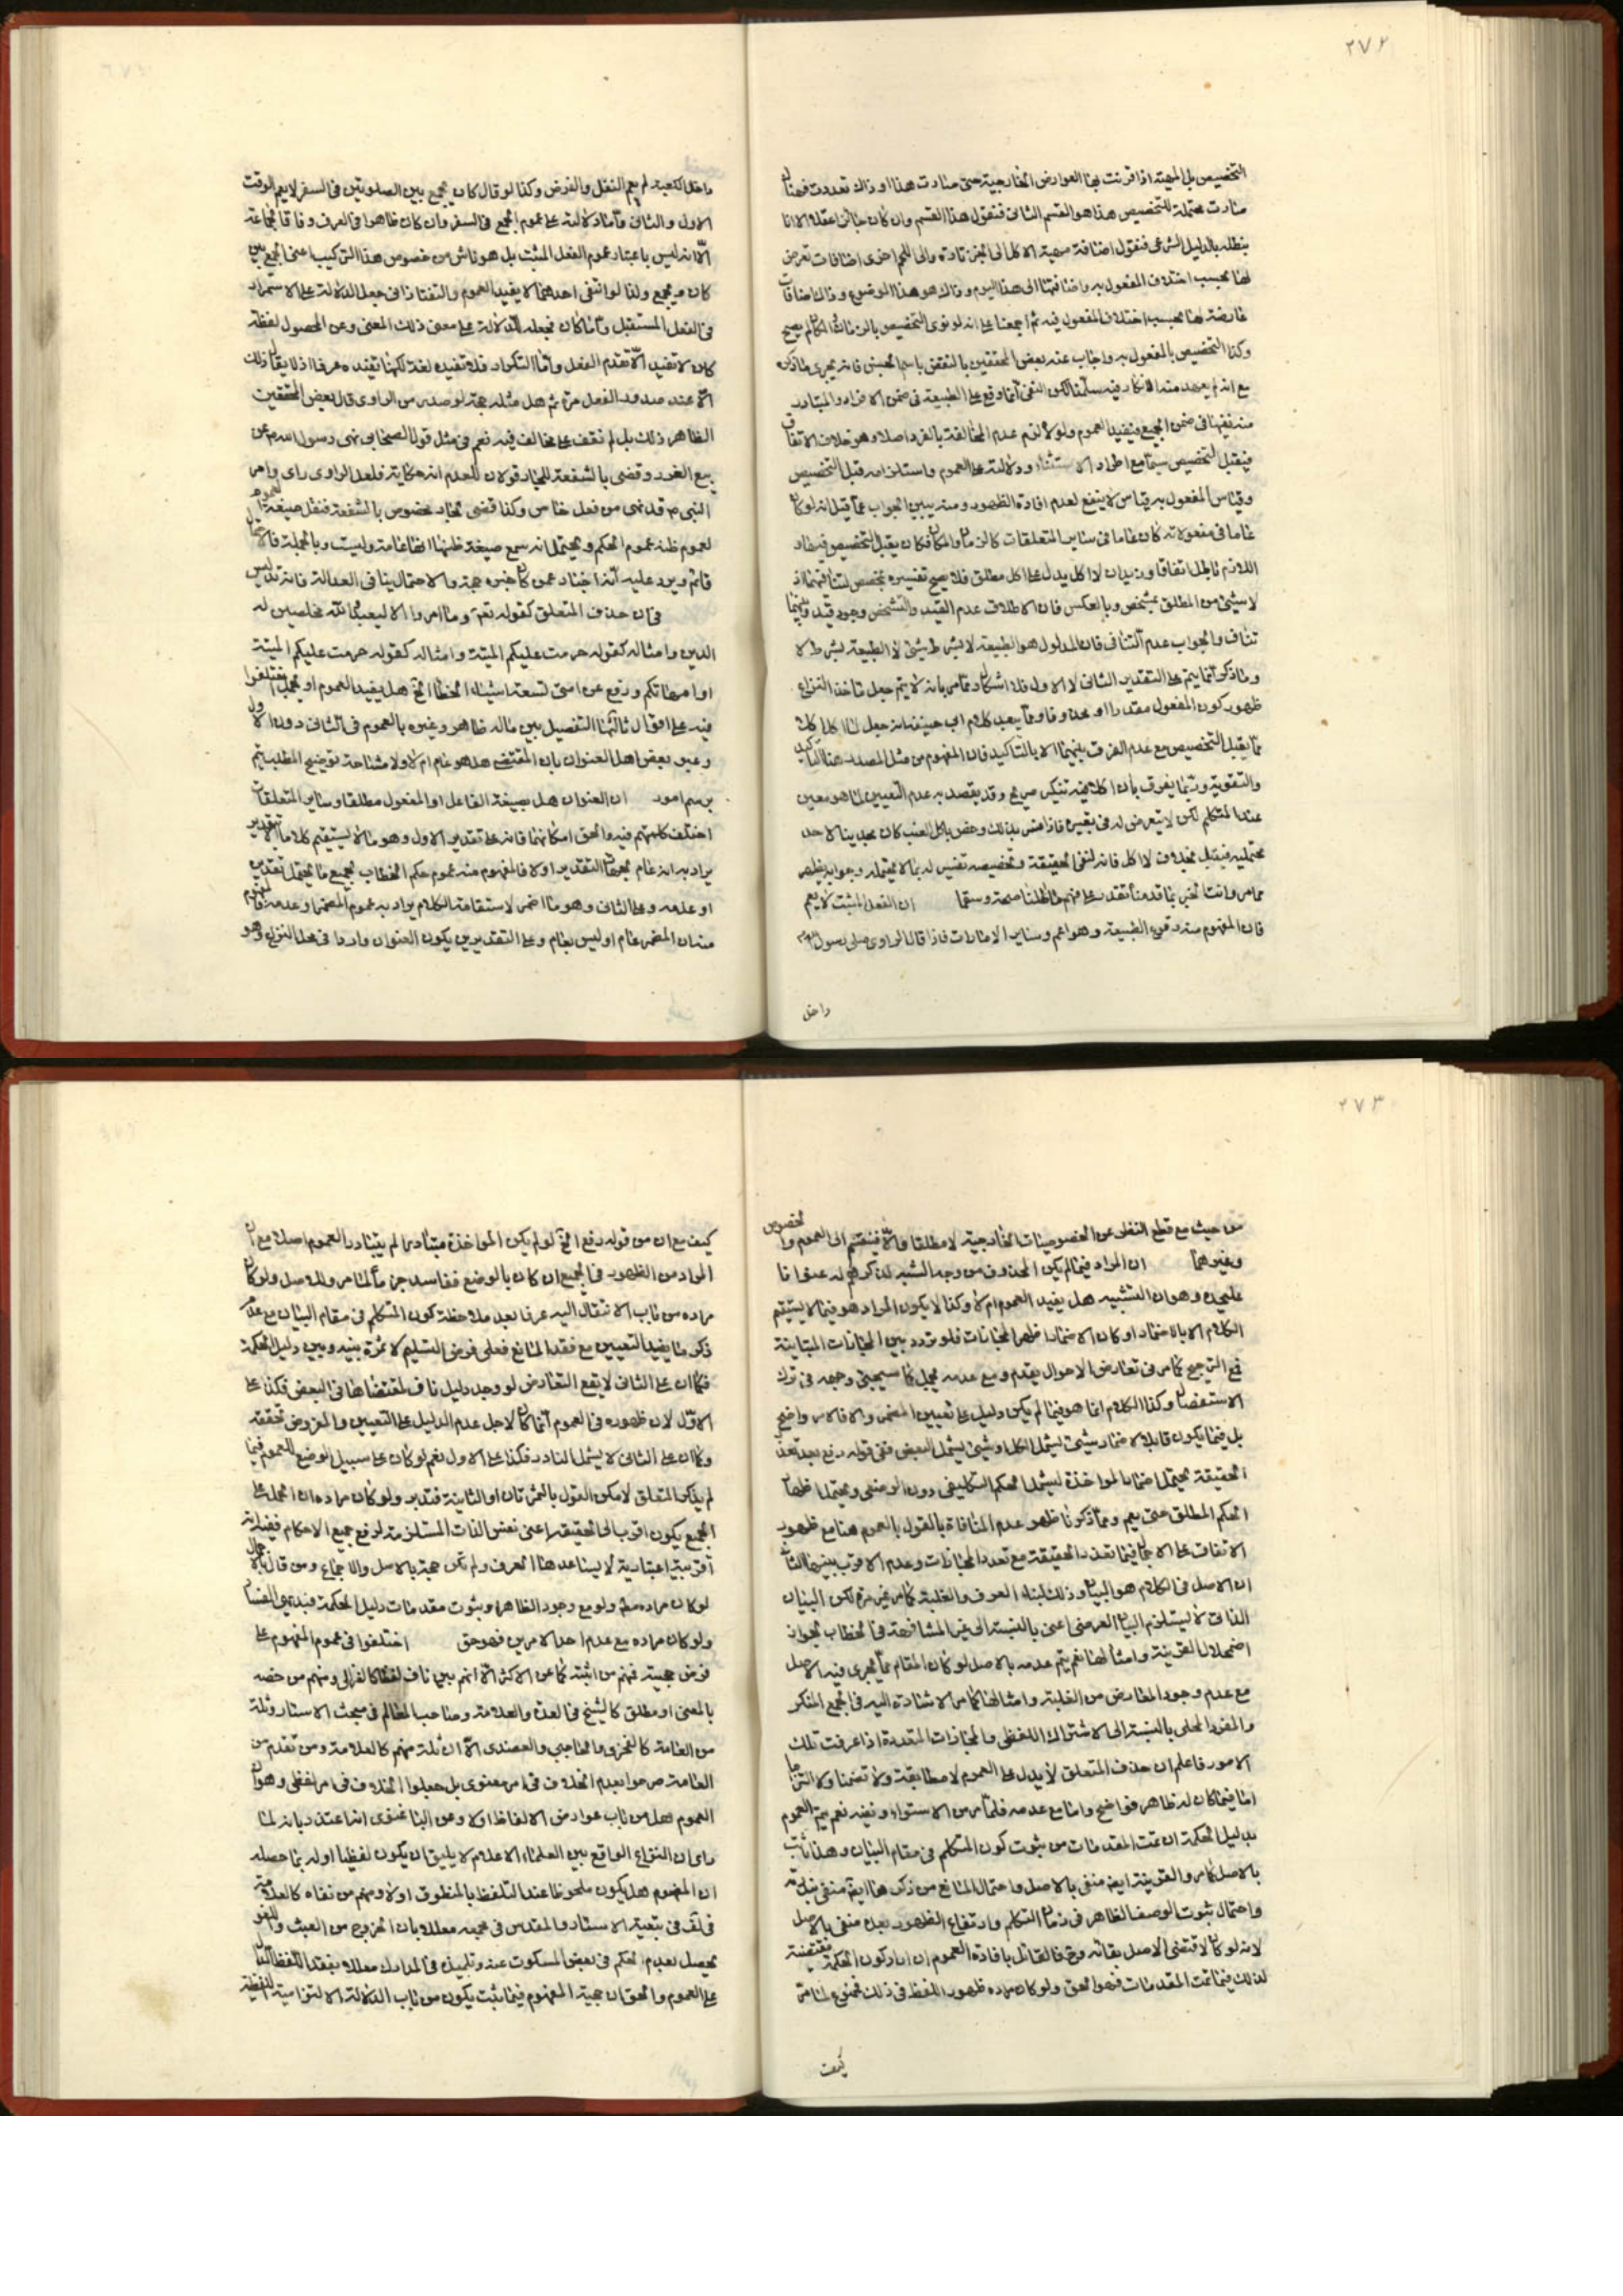 ٢٧٢
التخصيص بل المهية اذا اقرنت بها العوارض الخارجية حتى صارت هذا او ذاك تعددت فهنا
صارت محتملة للتخصيص هذا هو القسم الثانى فنقول هذا القسم وان كان جائزا عقلا الا انا
نبطله بالدليل الشرعى فنقول اضافة مهية الاكل الى الخبز تارة والى اللحم اخرى اضافات تعرض
لها بحسب اختلاف المفعول به واضافتها الى هذا اليوم وذاك وهو هذا الموضع وذاك اضافات
عارضة لها بحسب اختلاف المفعول فيه ثم اجمعنا على انه لو نوى التخصيص بالزمان والمكان لم يصح
وكذا التخصيص بالمفعول به واجاب عنه بعض المحققين بالنقض باسم الجنس فانه يجرى ما ذكره
مع انه لم يعهد منه الانكار فيه سلمنا لكن النفى انما وقع على الطبيعة فى ضمن الافراد والمتبادر
منه نفيها فى ضمن الجميع فيفيد العموم ولولا لزم عدم المخالفة بالفرد اصلا وهو خلاف الاتفاق
فيقبل التخصيص سيما مع اطراد الاستثناء ودلالته على العموم واستلزامه قبل التخصيص
وقياس المفعول به قياس لا ينفع لعدم افادة الظهور ومنه يبين الجواب عما قيل انه لو كان
عاما فى مفعولاته كان عاما فى ساير المتعلقات كالزمان والمكان فكان يقبل التخصيص فيها و
اللازم باطل اتفاقا وزيدان لا اكل يدل على اكل مطلق فلا يصح تفسيره بمخصص لتنافيهما اذ
لا شيئ من المطلق بمشخص وبالعكس فان الاطلاق عدم القيد والتشخص وجود قيد وبينهما
تناف والجواب عدم التنافى فان المدلول هو الطبيعة لا بشرط شيئ لا الطبيعة بشرط لا
وما ذكر انما يتم على التقدير الثانى لا الاول فلا اشكال وما مر بانه لا يتم جعل ماخذ النزاع
ظهور كون المفعول مقدرا او محذوفا وبما يبعد كلام ابى حنيفة انه جعل لا اكل اكلا
مما يقبل التخصيص مع عدم الفرق بينهما الا بالتاكيد فان المفهوم من مثل المصدر هنا التاكيد
والتقوية وربما يفرق بان اكلا فيه تنكير صريح وقد يقصد به عدم التعيين لما هو معين
عند المتكلم لكن لا يتعرض له فى تعبيره فاذا فسر بذلك وخص باكل العنب كان تحديثا لاحد
محتمليه فيقبل بخلاف لا اكل فانه لنفى الحقيقة وتخصيصه تفسير له بما لا يحتمله وجوابه يظهر
مما مر وانت خبير بما قدمنا تقدر على فهم ما اطلنا صحة وسقما ان الفعل المثبت لا يعم
فان المفهوم منه وقوع الطبيعة وهو اعم وساير الامارات فاذا قال الراوى صلى رسول الله
داخل
داخل الكعبة لم يعم النفل والفرض وكذا لو قال كان يجمع بين الصلوتين فى السفر لا يعم الوقت
الاول والثانى واما دلالته على عموم الجمع فى السفر وان كان ظاهرا فى العرف وفاقا لجماعة
الا انه ليس باعتبار عموم الفعل المثبت بل هو ناش من خصوص هذا التركيب اعنى الجمع بين
كان ويجمع ولذا لو انتفى احدهما لا يفيد العموم والتفتازانى جعل الدلالة على الاستمرار
فى الفعل المستقبل واما كان فجعله للدلالة على مضى ذلك المعنى وعن المحصول لفظة
كان لا تفيد الا تقدم الفعل واما التكرار فلا تفيده لغة لكنها تفيده عرفا اذ لا يقال ذلك
الا عند صدور الفعل مرة ثم هل مثله حجة لو صدر من الراوى قال بعض المحققين
الظاهر ذلك بل لم نقف على مخالف فيه نعم فى مثل قول الصحابى نهى رسول الله ص عن
بيع الغرر وقضى بالشفعة للجار قولان للعدم انه حكاية فلعل الراوى راى وامر
النبى ص قد نهى من فعل خاص وكذا قضى لجار مخصوص بالشفعة فنقل صيغة العموم
لعموم ظنه عموم الحكم ويحتمل انه سمع صيغة ظنها انها عامة وليست وبالجملة فالاحتمال
قائم ويرد عليه انه اخبار عمن كان خبره حجة والاحتمال ينافى العدالة فانه تدليس
فى ان حذف المتعلق كقوله تعم وما امروا الا ليعبدوا الله مخلصين له
الدين وامثاله كقوله حرمت عليكم الميتة وامثاله كقوله حرمت عليكم الميتة
او امهاتكم ورفع عن امتى تسعة اشياء الخطأ الخ هل يفيد العموم او يجمل اختلفوا
فيه على اقوال ثالثها التفصيل بين ماله ظاهر وغيره بالعموم فى الثانى دون الاول
وعبر بعض اهل العنوان بان المقتضى هل هو عام ام لا ولا مشاحة توضيح المطلب يتم
برسم امور ان العنوان هل بصيغة الفاعل او المفعول مطلقا وساير المتعلقات
اختلف كلمتهم فيه والحق امكانهما فانه على تقدير الاول وهو ما لا يستقيم كلاما الا بتقدير
يراد به انه عام بجهات التقدير اولا فالمفهوم منه عموم حكم الخطاب لجميع ما يحتمل تقديره
او عدمه وعلى الثانى وهو ما اضمر لاستقامة الكلام يراد به عموم المضمر او عدمه فالمفهوم
منه ان المضمر عام او ليس بعام وعلى التقديرين يكون العنوان واردا فى محل النزاع وهو
٢٧٣
من حيث مع قطع النظر عن الخصوصيات الخارجية لا مطلقا والا فينقسم الى العموم والخصوص
وغيرهما ان المراد فيما لم يكن المحذوف من وجه الشبه لذكرهم له عنوانا
عليحدة وهو ان التشبيه هل يفيد العموم ام لا وكذا لا يكون المراد هو فيما لا يستقيم
الكلام الا بالاضمار او كان الاضمار اظهر المجازات فلو تردد بين المجازات المتباينة
فمع الترجيح كما مر فى تعارض الاحوال يقدم ومع عدمه مجمل كما سيجيئ وجهه فى ترك
الاستفصال وكذا الكلام انما هو فيما لم يكن دليل على تعيين المضمر والا فالامر واضح
بل فيما يكون قابلا لاضمار شيئ يشمل الكل وشيئ يشمل البعض ففى قوله رفع بعد تعذر
الحقيقة يحتمل اضمار المواخذة ليشمل الحكم التكليفى دون الوضعى ويحتمل اظهار
الحكم المطلق حتى يعم ومما ذكرنا ظهر عدم المنافاة بالقول بالعموم هنا مع ظهور
الاتفاق على الاجمال فيما تعذر الحقيقة مع تعدد المجازات وعدم الاقرب بينهما الثالث
ان الاصل فى الكلام هو البيان وذلك لبناء العرف والغلبة كما مر غير مرة لكن البيان
الذاتى لا يستلزم البيان العرضى اعنى بالنسبة الى غير المشافهة فى الخطاب لجواز
اضمحلال القرينة وامثالها نعم يتم عدمه بالاصل لو كان المقام مما يجرى فيه الاصل
مع عدم وجود المعارض من الغلبة وامثالها كما مر الاشارة اليه فى الجمع المنكر
والمفرد المحلى بالنسبة الى الاشتراك اللفظى والمجازات المتعددة اذا عرفت تلك
الامور فاعلم ان حذف المتعلق لا يدل على العموم لا مطابقة ولا تضمنا ولا التزاما
اما فيما كان له ظاهر فواضح واما مع عدمه فلما مر من الاستواء ونفيه نعم يتم العموم
بدليل الحكمة ان تمت المقدمات من ثبوت كون المتكلم فى مقام البيان وهذا ثابت
بالاصل كما مر والقرينة ايضا منفى بالاصل واحتمال المانع من ذكرها ايضا منفى بذلك
واحتمال ثبوت الوصف الظاهر فى زمان التكلم وارتفاع الظهور بعده منفى بالاصل
لانه لو كان لاقتضى الاصل بقائه وح فالقائل بافادة العموم ان اراد كون الحكمة مقتضية
لذلك فيما تمت المقدمات فهو الحق ولو كان مراده ظهور اللفظ فى ذلك فممنوع لما مر
كيف
كيف مع ان من قوله رفع الخ لو لم يكن المواخذة متبادرا لم يتبادر العموم اصلا مع ان
المراد من الظهور فى الجميع ان كان بالوضع ففاسد جزما لما مر وللاصل ولو كان
مراده من باب الانتقال اليه عرفا بعد ملاحظة كون المتكلم فى مقام البيان مع عدم
ذكر ما يفيد التعيين مع فقد المانع فعلى فرض التسليم لا ثمرة بينه وبين دليل الحكمة
فكما ان على الثانى لا يقع التعارض لو وجد دليل ناف لمقتضاها فى البعض فكذا على
الاول لان ظهوره فى العموم انما كان لاجل عدم الدليل على التعيين والمفروض تحققه
وكما ان على الثانى لا يشمل النادر فكذا على الاول نعم لو كان على سبيل الوضع للعموم فيما
لم يذكر المتعلق لامكن القول بالثمرتان او الثانية فتدبر ولو كان مراده ان الحمل على
الجميع يكون اقرب الى الحقيقة اعنى نفى الذات المستلزمة لرفع جميع الاحكام ففيه انه
اقربية اعتبارية لا يساعدها العرف ولم تكن حجة بالاصل والاجماع ومن قال بالاجمال
لو كان مراده مطلقا ولو مع وجود الظاهر وثبوت مقدمات دليل الحكمة فبديهى الفساد
ولو كان مراده مع عدم احد الامرين فهو حق اختلفوا فى عموم المفهوم على
فرض حجيته فمنهم من اثبته كما عن الاكثر الا انهم بين ناف لفظا كالغزالى ومنهم من خصه
بالمعنى او مطلق كالشيخ فى العدة والعلامة وصاحب المعالم فى مبحث الاستار وثلة
من العامة كالفخرى والحاجبى والعضدى الا ان ثلة منهم كالعلامة ومن تقدم من
العامة صرحوا بعدم الخلاف فى امر معنوى بل جعلوا الخلاف فى امر لفظى وهو ان
العموم هل من باب عوارض الالفاظ اولا وعن الباغنوى انه اعتذر بانه لما
راى ان النزاع الواقع بين العلماء الاعلام لا يليق ان يكون لفظيا اوله بما حصله
ان المفهوم هل يكون ملحوظا عند التلفظ بالمنطوق اولا ومنهم من نفاه كالعلامة
فى لف فى بتعية الاستار والمقدس فى مجمعه معللا بان الخروج من العبث واللغو
يحصل بعدم الحكم فى بعض المسكوت عنه وتلميذه فى المدارك معللا بفقد اللفظ الدال
على العموم والحق ان حجية المفهوم فيما يثبت يكون من باب الدلالة الالتزامية اللفظية